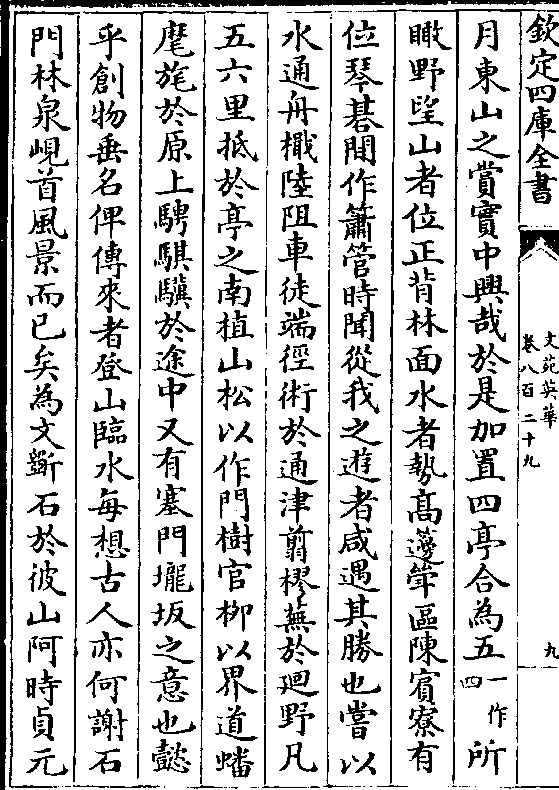 欽定四庫全書
文苑英華
卷八百二十九
九
月東山之賞實中興哉於是加置四亭合為五一作四所
瞰野望山者位正背林面水者勢高籩䇯區陳賓寮有
位琴棊間作簫管時聞從我之遊者咸遇其勝也嘗以
水通舟檝陸阻車徒端徑術於通津翦樛蕪於廻野凡
五六里抵於亭之南植山松以作門樹官栁以界道蟠
麾旄於原上騁騏驥於途中又有塞門壠坂之意也懿
乎創物垂名俾傳來者登山臨水每想古人亦何謝石
門林泉峴首風景而已矣為文斵石於彼山阿時貞元